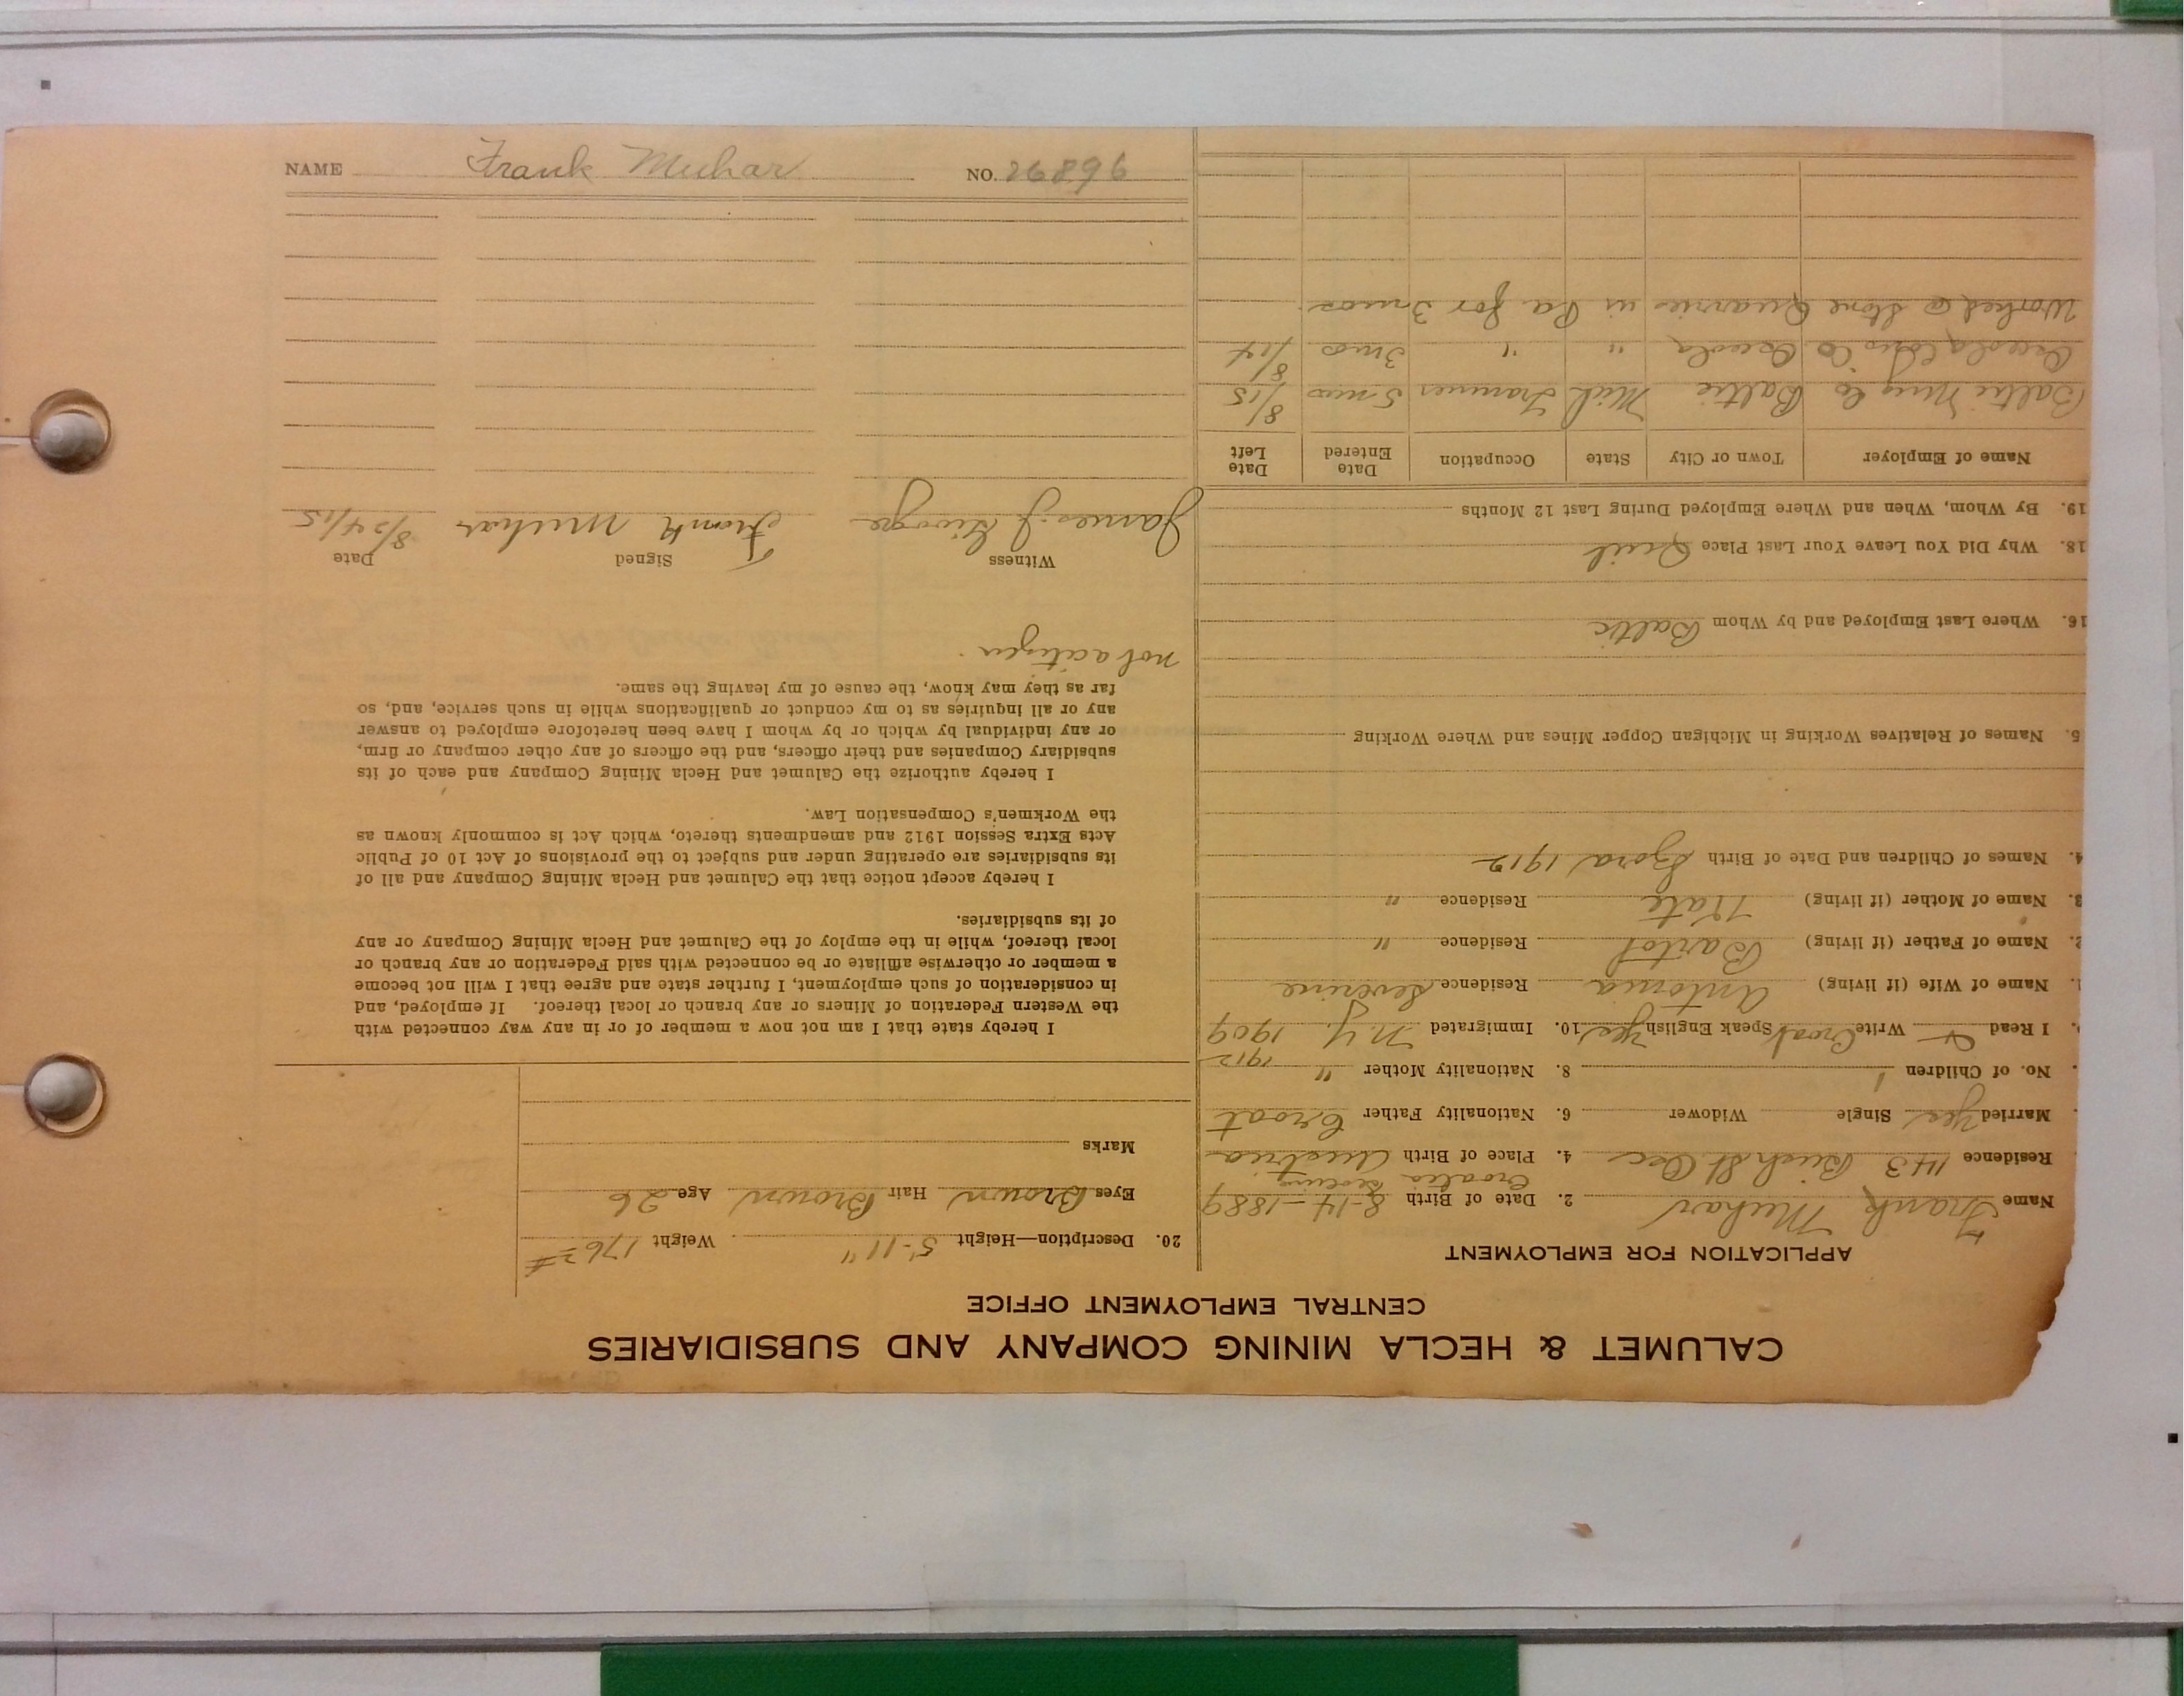 CALUMET & HECLA MINING COMPANY AND SUBSIDIARIES
CENTRAL EMPLOYMENT OFFICE
APPLICATION FOR EMPLOYMENT
Name Frank Muhar 2. Date of Birth 8-14-1889
Croatia
Residence 143 St Osc 4. Place of Birth Austria
Married Yes Single Widower 6. Nationality Father Croat
No. of Children 1 8. Nationality Mother "
1912
I Read Write Croat Speak English Yes 10. Immigrated N.Y. 1909
Name of Wife (if living) Antonia Residence Severine
2. Name of Father (if living) Bartol Residence "
3. Name of Mother (if living) Kate Residence "
4. Names of Children and Date of Birth 1912
5. Names of Relatives Working in Michigan Copper Mines and Where Working
16. Where Last Employed and by Whom Baltic
18. Why Did You Leave Your Last Place Quit
19. By Whom, When and Where Employed During Last 12 Months
Name of Employer Town or City State Occupation Date Entered Date Left
Baltic Mng Co Baltic Mich Trammer 5 mos 8/15
Osceola Co Osceola " " 3 mos 8/14
Worked @ Stone Quarries in Pa for 3 mos
20. Description—Height 5'-11" Weight 176 #
Eyes Brown Hair Brown Age 26
Marks
I hereby state that I am not now a member of or in any way connected with
the Western Federation of Miners or any branch or local thereof. If employed, and
in consideration of such employment, I further state and agree that I will not become
a member or otherwise affiliate or be connected with said Federation or any branch or
local thereof, while in the employ of the Calumet and Hecla Mining Company or any
of its subsidiaries.
I hereby accept notice that the Calumet and Hecla Mining Company and all of
its subsidiaries are operating under and subject to the provisions of Act 10 of Public
Acts Extra Session 1912 and amendments thereto, which Act is commonly known as
the Workmen's Compensation Law.
I hereby authorize the Calumet and Hecla Mining Company and each of its
subsidiary Companies and their officers, and the officers of any other company or firm,
or any individual by which or by whom I have been heretofore employed to answer
any or all inquiries as to my conduct or qualifications while in such service, and, so
far as they may know, the cause of my leaving the same.
not a citizen.
Witness Signed Date
James J. George Frank Muhar 8/24/15
NAME Frank Muhar NO. 26896